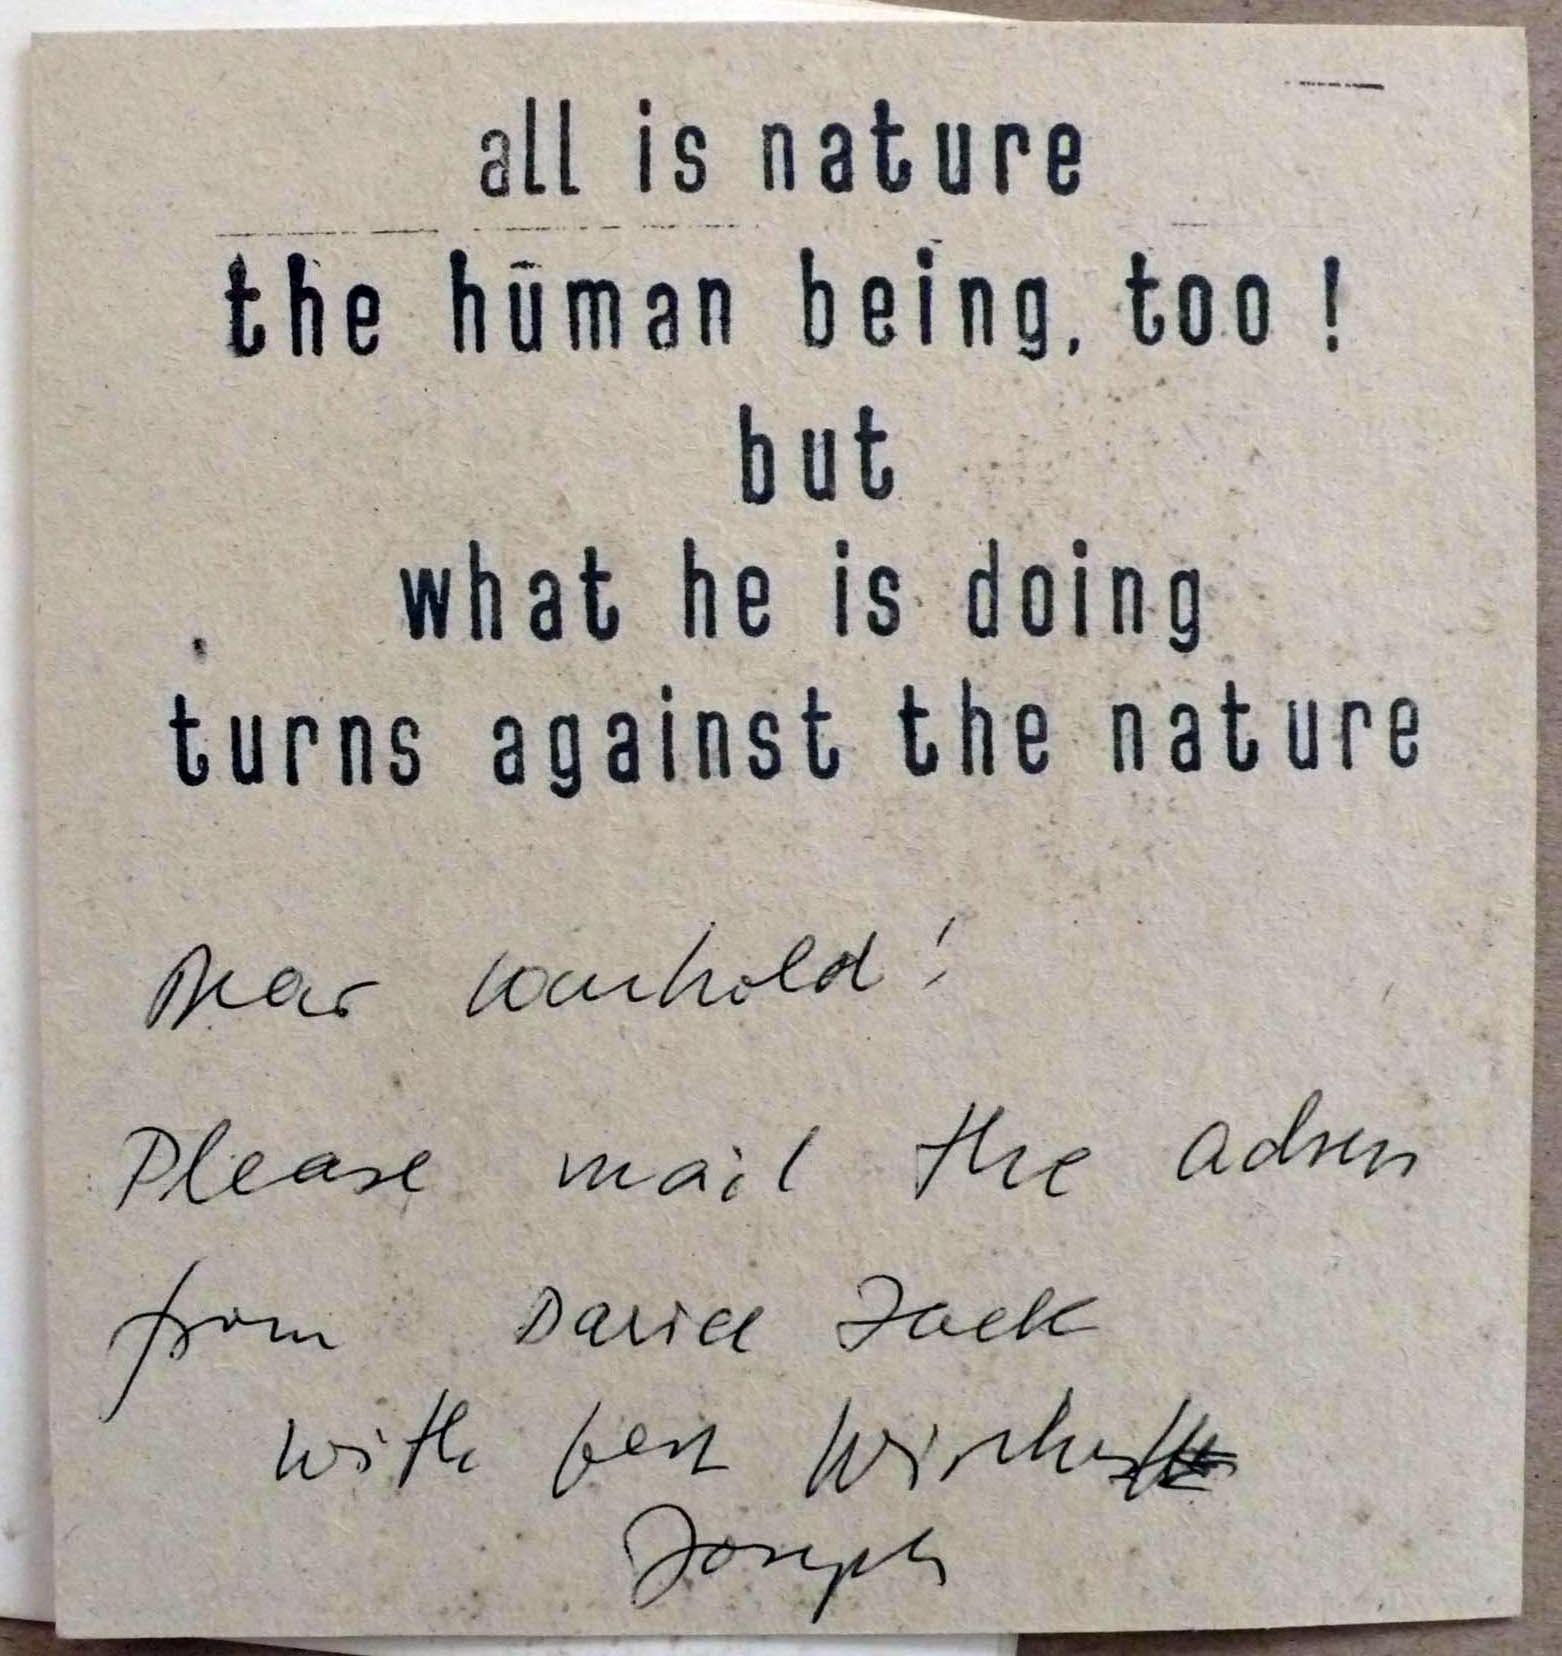 all is nature
the human being, too!
but
what he is doing
turns against the nature
Dear Warhold!
Please mail the adress
from Daniel Jack
with best wishes
Joseph